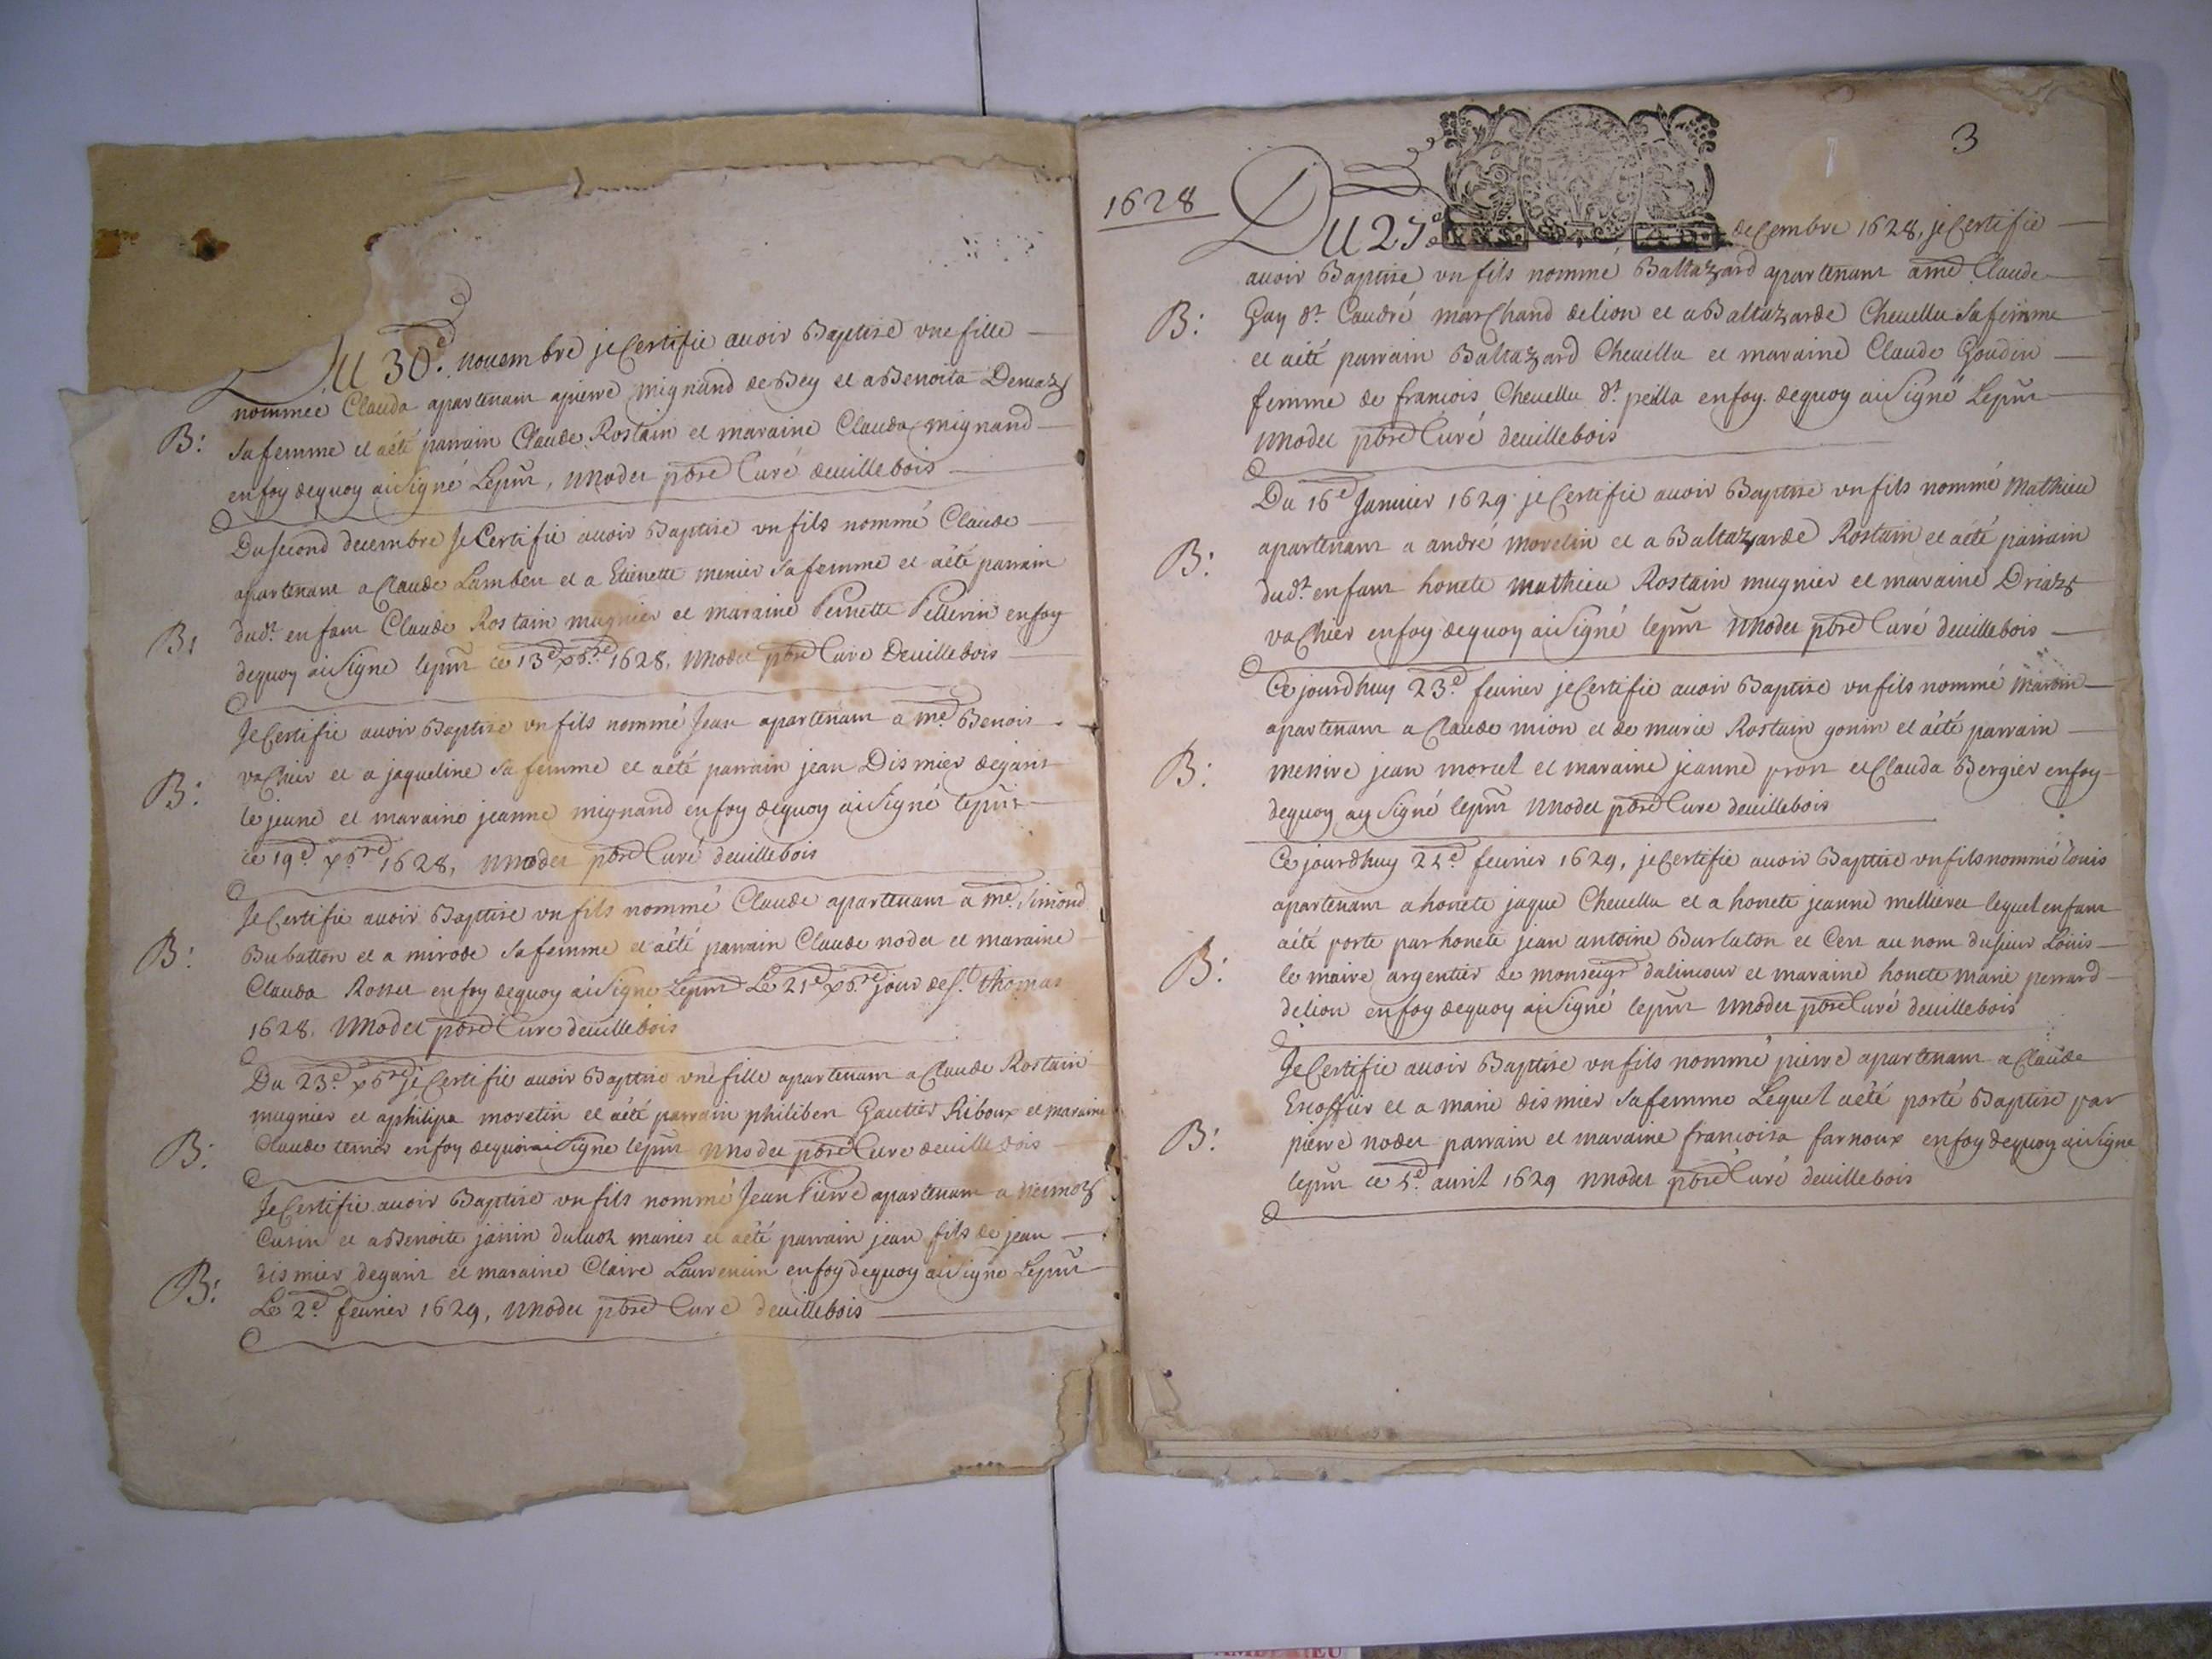 Du 30e. nouembre je Certifie auoir Baptisé vne fille
nommeé Clauda apartenam apierre mignand de Bey et a Benoita
B: sa femme et aété parrain Claude Rostain et maraine Clauda mignand
en foy dequoy ai signé Lepnr, nnodet pbre Curé deuillebois
Du second decembre Je Certifie auoir Baptisé vn fils nommé Claude
apartenant a Claude Lambert et a Etienette menier sa femme et aété parrain
B: dudt. enfant Claude Rostain mugnier et maraine Pernette Pellerin enfoy
dequoy ai signe lepnr ce 13e xbre 1628, nnodet pbre Cure Deuillebois
Je Certifie auoir Baptisé vn fils nommé Jean apartenant a me Benois
B: vachier et a jaqueline sa femme et aété parrain jean Dismier degant
le jeune et maraine jeanne mignand enfoy dequoy ai signé lepnr
ce 19e xbre 1628, nnodet pbre Curé deuillebois
Je Certifie auoir Baptisé vn fils nommé Claude apartenant a me. Simond
B: Bubatton et a mirode sa femme et aété parrain Claude nodet et maraine
Clauda Rosset enfoy dequoy ai signe Lepnr Le 21e xbre jour de st. thomas
1628. nnodet pbre Cure deuillebois
Du 23e. xbre je Certifie auoir Baptisé vne fille apartenant a Claude Rostain
mugnier et aphilipa moretin et aété parrain philibert Gautier Riboux et maraine
B: Claude enfoy dequoi ai signe lepnr nnodet pbre Cure deuille bois
Je Certifie auoir Baptisé vn fils nommé Jean Pierre apartenant a
Cusin et a Benoite janin mariés et aété parrain jean fils de jean
B: dismier degant et maraine Claire Laurencin enfoy dequoy ai signe Lepnr
Le 2e. feurier 1629, nnodet pbre Cure deuillebois
3
1628
Du 27e decembre 1628, je Certifie
auoir Baptisé vn fils nommé Baltazard apartenant ame. Claude
B: Gay dt. Caudré marchand delion et a Baltazarde Cheuellu sa femme
et aété parrain Baltazard Cheuellu et maraine Claude Goudin
femme de francois Cheuellu dt. peilla enfoy dequoy ai signé Lepnr
nnodet pbre Curé deuillebois
Du 16e Januier 1629 je Certifie auoir Baptisé vn fils nommé Mathieu
B: apartenant a andré morelin et a Baltazarde Rostain et aété parrain
dudt. enfant honete mathieu Rostain mugnier et maraine
vachier enfoy dequoy ai signé lepnr nnodet pbre Curé deuillebois
Ce jourdhuy 23e. feurier je Certifie auoir Baptisé vn fils nommé
apartenant a Claude mion et de marie Rostain gonin et aété parrain
B: messire jean morcel et maraine jeanne pron et Clauda Bergier enfoy
dequoy ay signé lepnr nnodet pbre Cure deuillebois
Ce jourdhuy 25e feurier 1629, je Certifie auoir Baptisé vn fils nommé Louis
apartenant a honete jaque Cheuellu et a honete jeanne lequel enfant
B: aété porte par honete jean antoine Burlaton et Cen au nom du sieur Loüis
le maire argentier de monseigr dalincour et maraine honete marie perrard
delion enfoy dequoy ai signé lepnr nnodet pbre Curé deuillebois
Je Certifie auoir Baptisé vn fils nommé pierre apartenant a Claude
Escoffier et a marie dismier sa femme Lequel aété porté Baptise par
B: pierre nodet parrain et maraine francoisa farnoux enfoy dequoy ai signe
lepnr ce 5e. auril 1629 nnodet pbre Curé deuillebois